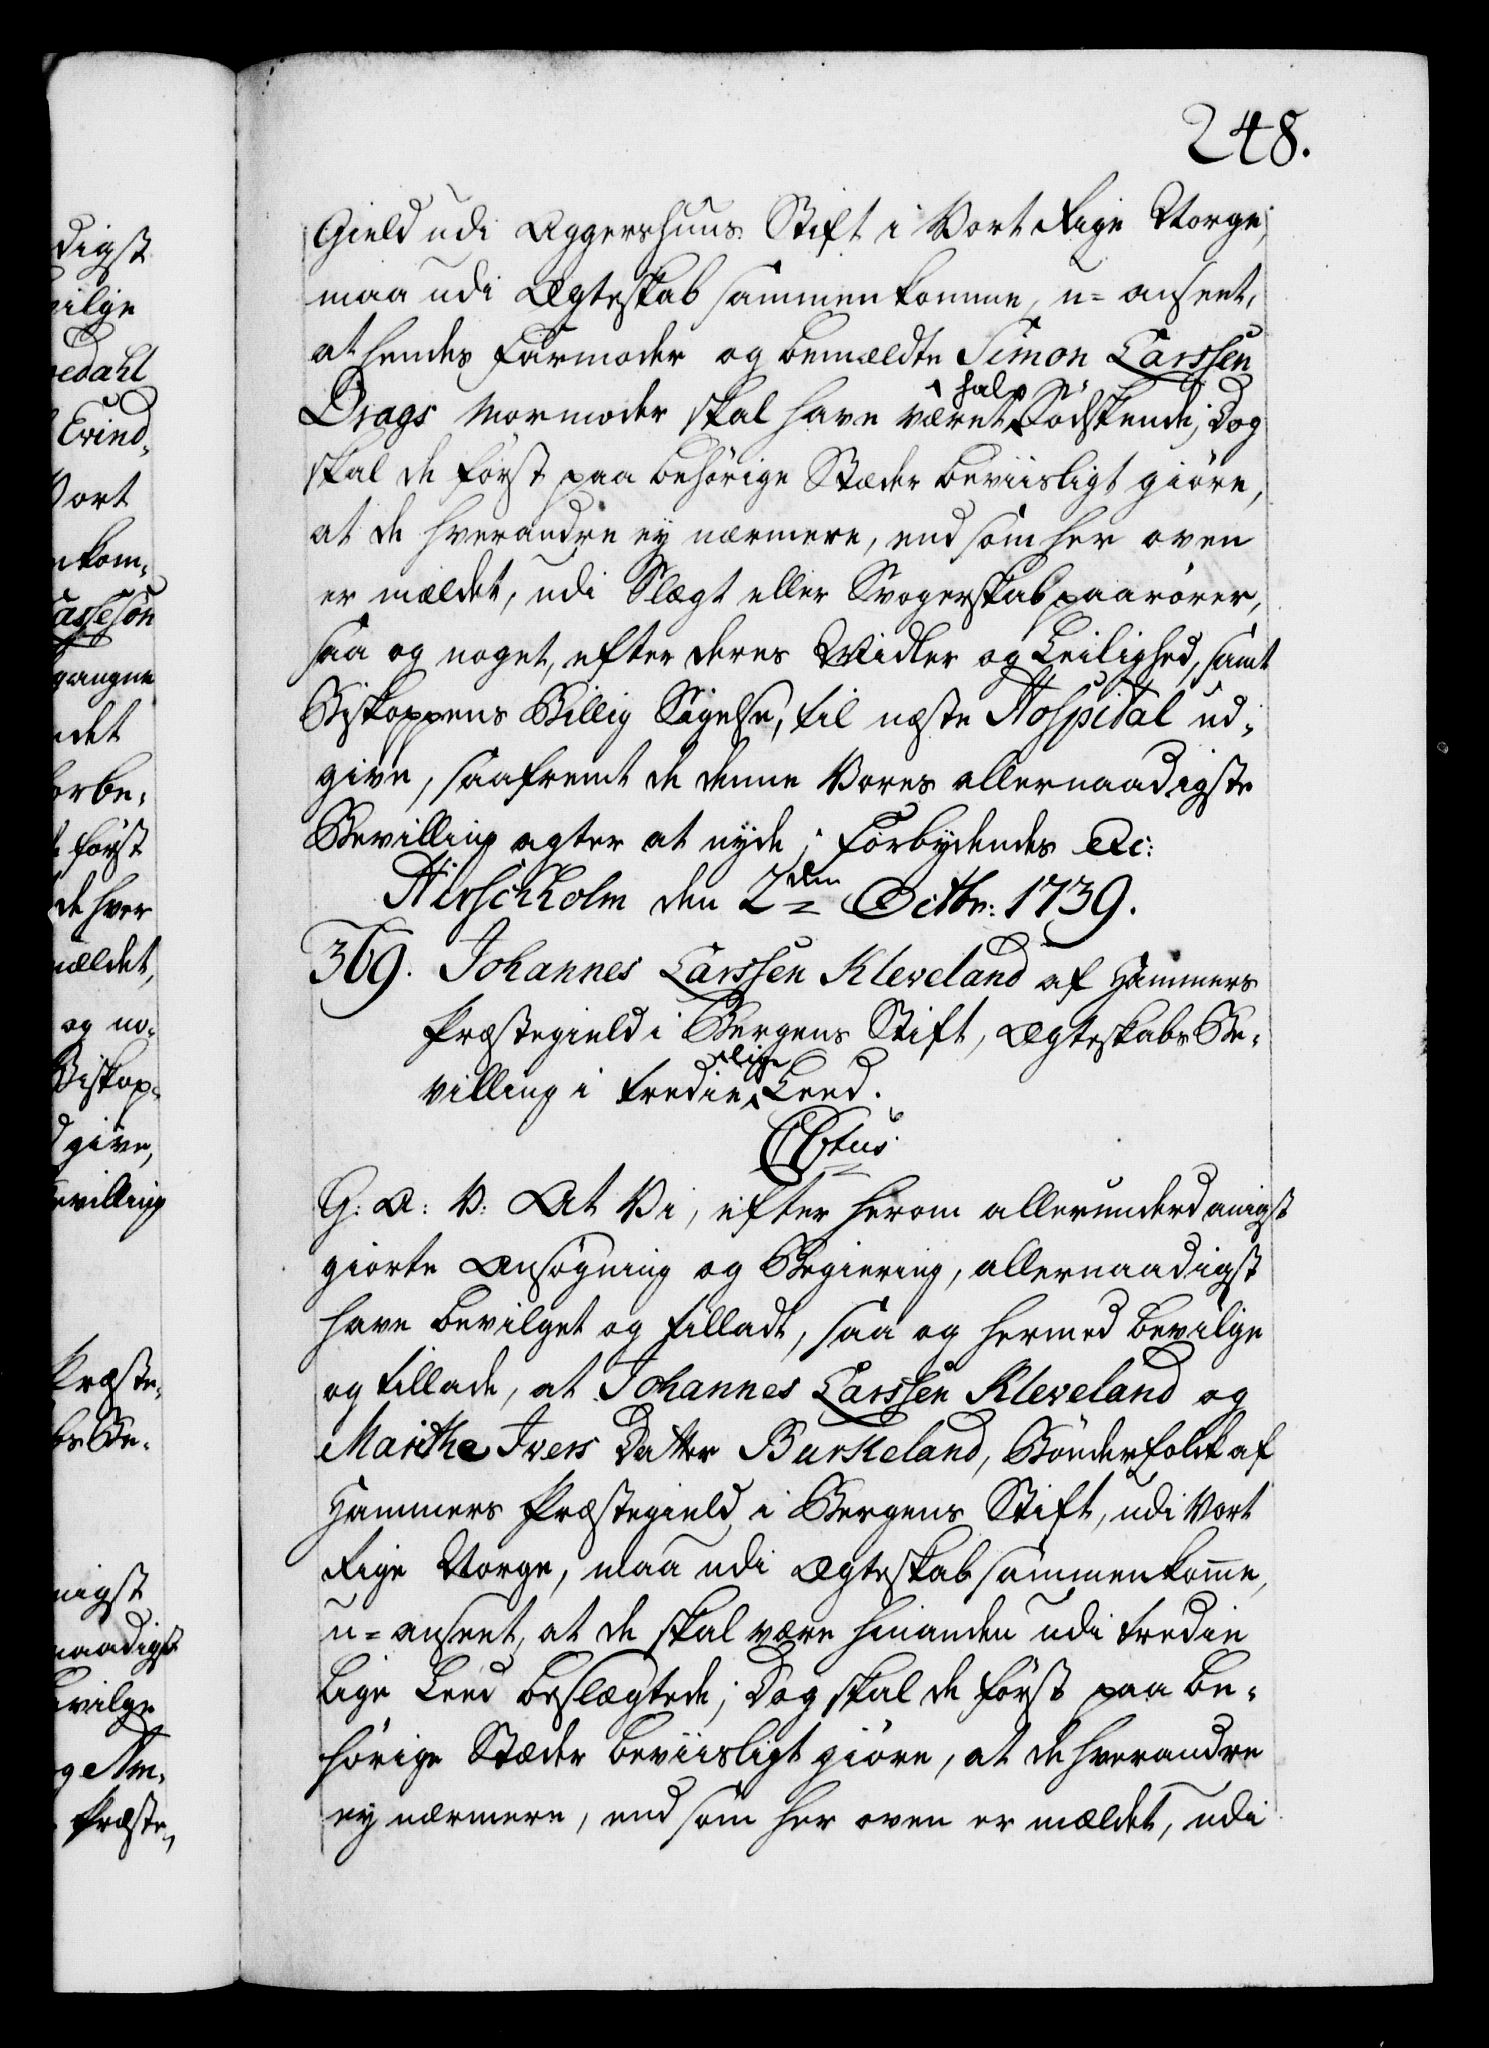 248.
Gield udi Aggershuus Stift i Vort Rige Norge,
maa udi Ægteskab sammenkomme, u= anseet,
at hendes Farmoder og bemældte Simon Larssen
Drags Mormoder skal have været halv Södskende; Dog
skal de först paa behörige Stæder beviisligt giöre,
at de hverandre ey nærmere, end som her oven
er mældet, udi Slægt eller Svogerskab paarörer,
saa og noget, efter deres Midler og Leilighed, samt
Biskoppens Billig Sigelse, til næste Hospital ud-
give, saafremt de denne Vores allernaadigste
Bevilling agter at nyde; Forbydendes etc:
Hirschholm den 2den Octbr: 1739.
369. Johannes Larssen Kleveland af Hammers
Præstegield i Bergens Stift, Ægteskabs Be-
villing i tredie lige Leed.
G: A: V: At Vi, efter herom allerunderdanigst
giorte Ansögning og Begiering, allernaadigst
have bevilget og tilladt, saa og hermed bevilge
og tillade, at Johannes Larssen Kleveland og
Marithe Ivers Datter Burkeland, Bönderfolck af
Hammers Præstegield i Bergens Stift, udi Vort
Rige Norge, maa udi Ægteskab sammenkomme,
u= anseet, at de skal være hinanden udi tredie
lige Leed beslægtede; Dog skal de först paa be-
hörige Stæder beviisligt giöre, at de hverandre
ey nærmere, end som her oven er mældet, udi
digst
vilge
edahl
Evind-
Vort
nkom-
gangne
ndet
orbe-
först
de hver
mældet,
og no-
Biskop-
give,
evilling
Præste-
bs Be-
nigst
naadigst
evilge
Præste-